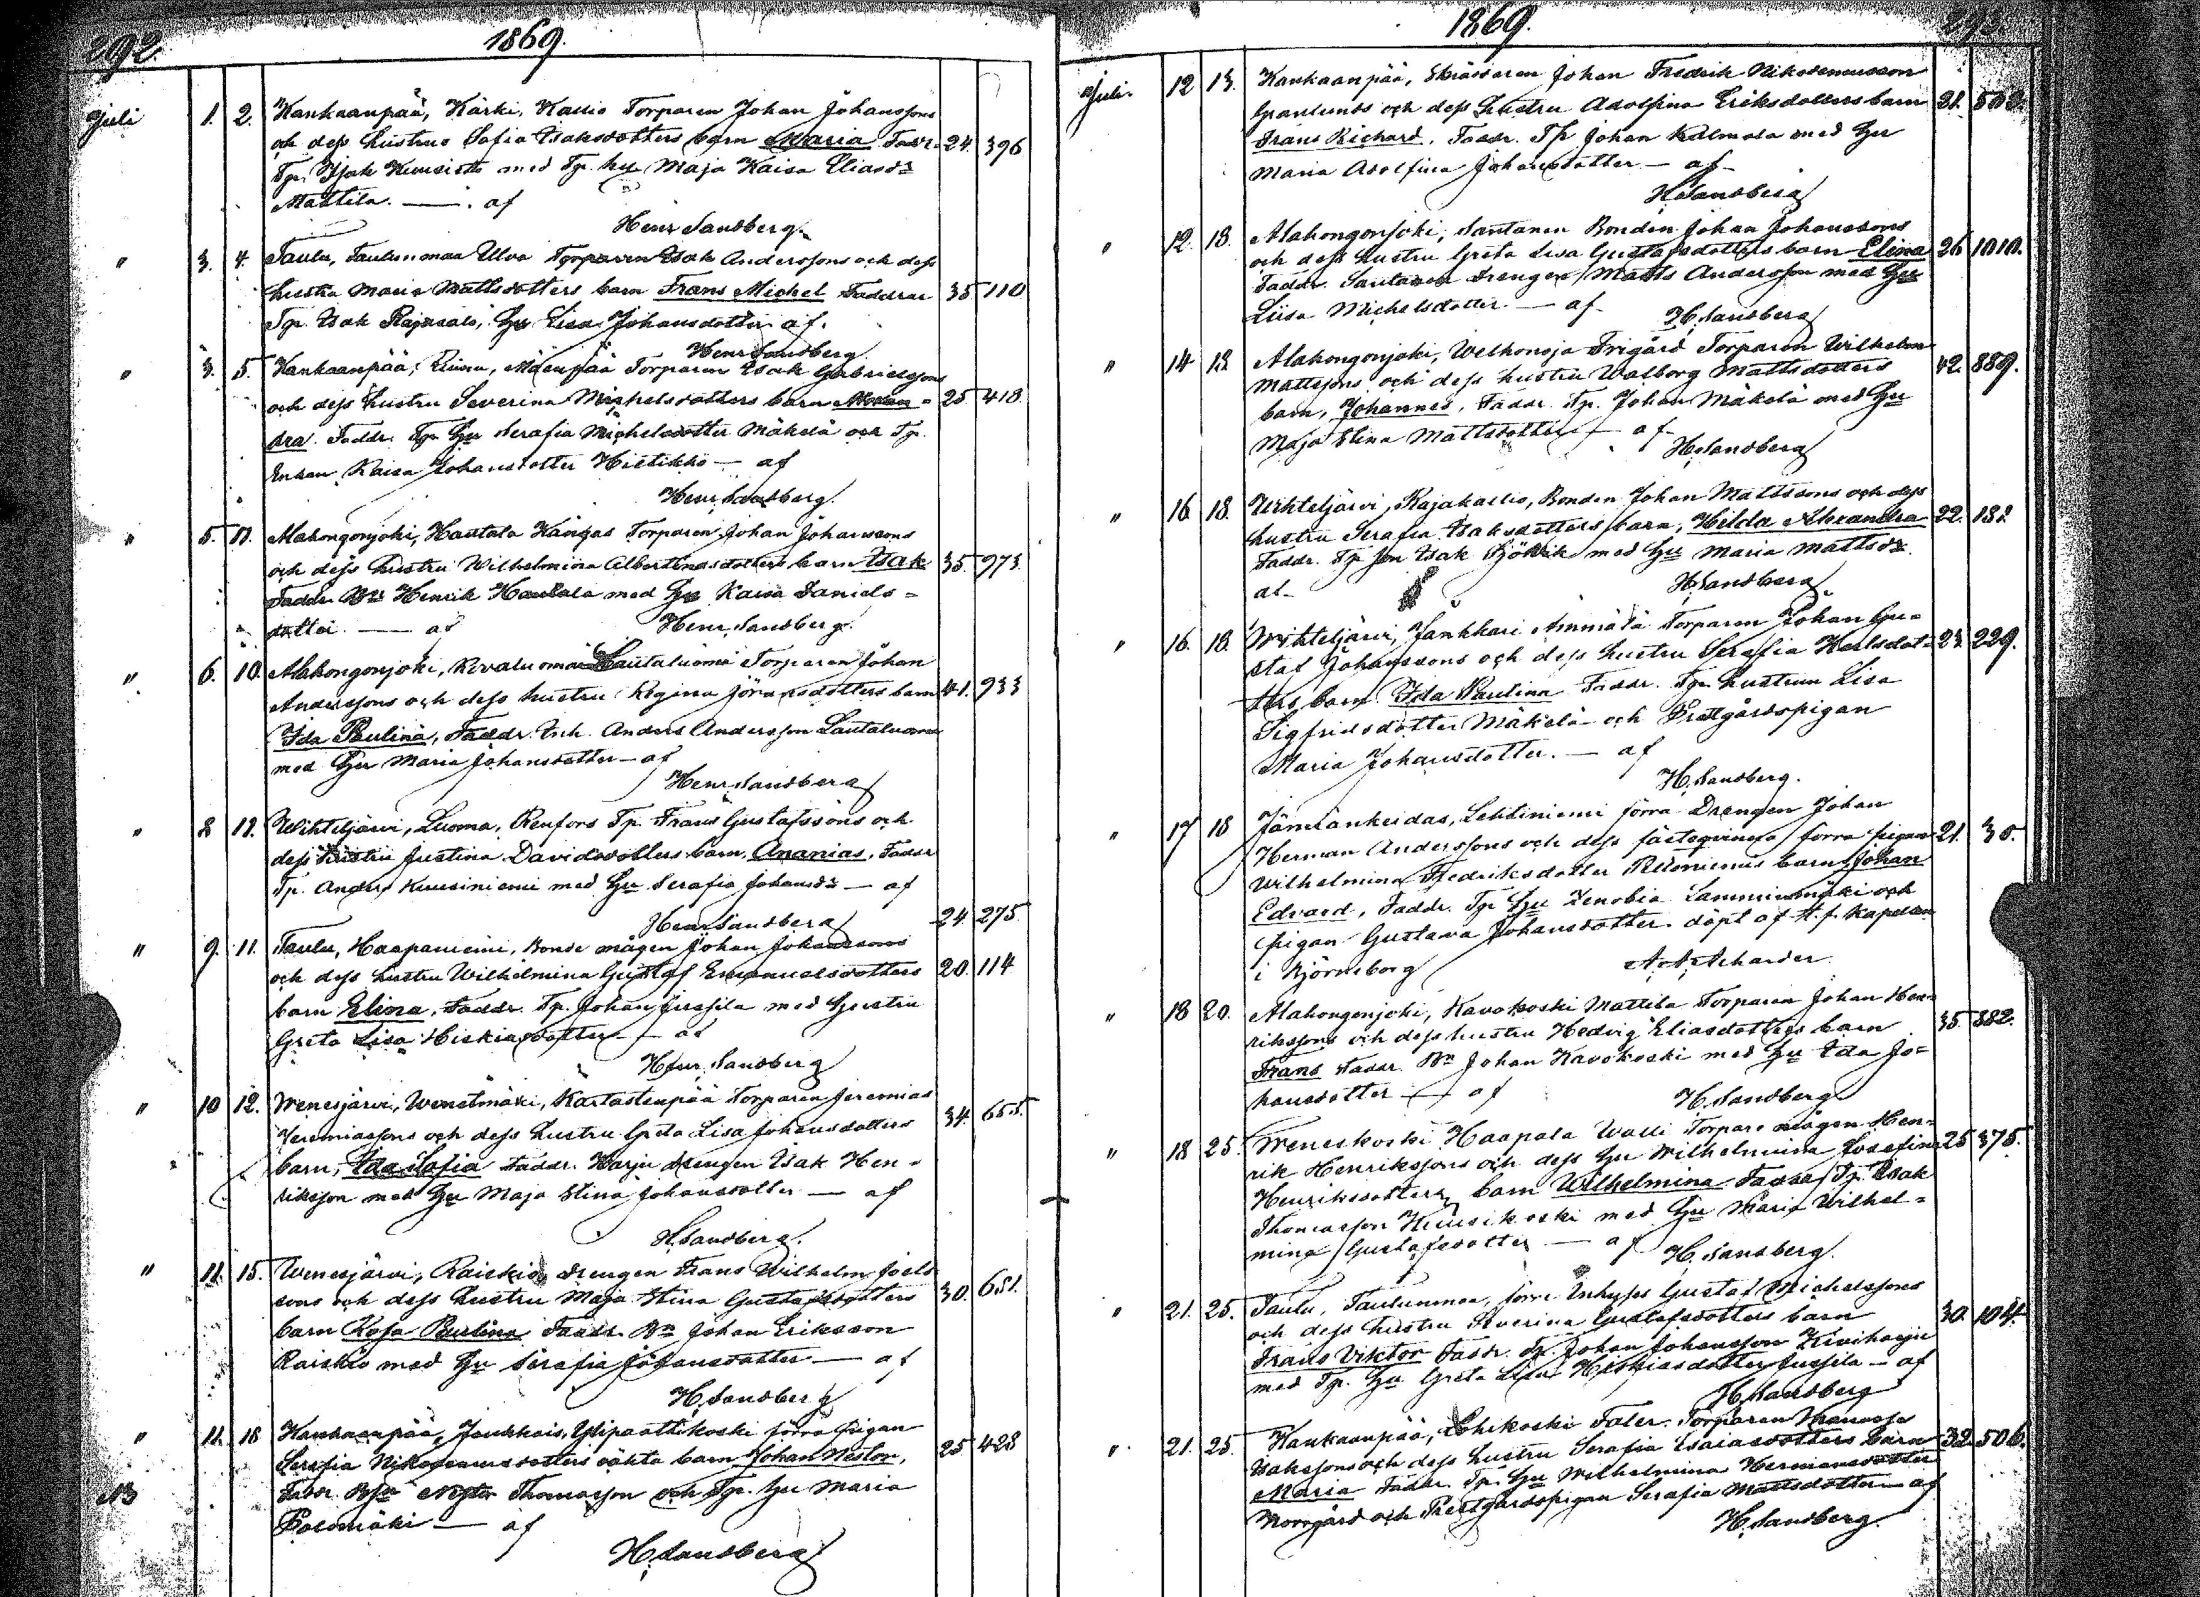 292.
1869.
Juli 1. 2. Kankaanpää, Kärki, Kallio Torparen Johan Johanssons
och dess hustrus Sofia Isaksdotters barn Maria Faddr. 24. 396
Tp. Isak Kuusisto med Tp. hu Maja Kaisa Eliasdr
Mattila. — . af
Henr Sandberg.
" 3. 4. Taulu, Taulunomaa Ulva Torparen Isak Anderssons och dess
hustru Maria Mattsdotters barn Frans Michel Faddrar 35 110
Tp. Isak Rajasalo, Hu Lisa Johansdotter af.
Henr Sandberg.
" 3. 5. Kankaanpää, Mäenpää Torparen Isak Gabrielssons
och dess hustru Severina Michelsdotters barn 25 418
dra. Faddr. Tp. Hu Serafia Michelsdotter Mäkelä och Tp.
Enkan Kaisa Johansdotter Hietikko — af
Henr. Sandberg.
" 5. 11. Alahongonjoki, Hautala Kangas Torparen Johan Johanssons
och dess hustru Wilhelmina Albertinasdotters barn Isak 35 973
Faddr. Bn Henrik Hautala med Hu Kaisa Daniels-
dotter. — af Henr. Sandberg.
" 6. 10. Alahongonjoki, Lautaluoma Torparen Johan
Anderssons och dess hustru Regina Göransdotters barn 41. 933
Ida Paulina, Faddr. Inh. Anders Andersson Lautaluoma
med Hu Maria Johansdotter — af
Henr. Sandberg
" 8 11. Wihteljärvi, Luoma, Renfors Tp. Frans Gustafssons och
dess hustru Justina Davidsdotters barn, Ananias, Faddr
Tp. Anders Kuusiniemi med Hu Serafia Johansdr — af
Henr Sandberg 24 275.
" 9. 11. Taulu, Haapaniemi, Bonde mågen Johan Johanssons
och dess hustru Wilhelmina Gustaf Emanuelsdotters 20. 114
barn Elina, Faddr. Tp. Johan Jussila med Hustru
Greta Lisa Hiskiasdotter — af
Henr. Sandberg
" 10 12. Wenesjärvi, Wenetmäki, Torparen Jeremias
Jeremiassons och dess hustru Greta Lisa Johansdotters 34. 655.
barn, Ida Sofia Faddr. Harju drengen Isak Hen-
riksson med Hu Maja Stina Johansdotter — af
H. Sandberg.
" 11. 15. Wenesjärvi, Raiskio, drengen Frans Wilhelm Joels-
sons och dess hustru Maja Stina Gustafsdotters 30. 651.
barn Rosa Paulina Faddr. Bn Johan Eriksson
Raiskio med Hu Serafia Johansdotter — af
H. Sandberg
" 11. 18 Kankaanpää, Ylipaattikoski förra Pigan
Serafia Nikodemusdotters oäkta barn Johan Nestor, 25 428
NB Faddr. Nestor Thomasson och Tp. hu Maria
Palomäki — af
H. Sandberg
1869.
293
Juli. 12 13. Kankaanpää, Skräddaren Johan Fredrik Nikodemusson
Granlunds och dess hustru Adolfina Eriksdotters barn 31. 503.
Frans Richard, Faddr. Tp Johan Kalmala med Hu
Maria Adolfina Johansdotter — af
H Sandberg
" 12. 18. Alahongonjoki, Santanen Bonden Johan Johanssons
och dess hustru Greta Lisa Gustafsdotters barn Elina 26 1010.
Faddr. Santanen Drengen Matts Andersson med Hu
Liisa Michelsdotter — af
H. Sandberg
" 14 18 Alahongonjoki, Welhonoja Frigård Torparen Wilhelm
Mattssons och dess hustru Walborg Mattsdotters 42. 889.
barn, Johannes, Faddr. Tp. Johan Mäkelä med Hu
Maja Stina Mattsdotter — af
H. Sandberg
" 16 18. Wihteljärvi, Rajakallio, Bonden Johan Mattssons och dess
hustru Serafia Isaksdotters barn, Hilda Alexandra 22. 182
Faddr. Tp son Isak med Hu Maria Mattsdr.
af
H. Sandberg
" 16. 18. Wihteljärvi, Jankkari Ammälä Torparen Johan Gu-
staf Johanssons och dess hustru Serafia Karlsdot- 23. 229.
ters barn Ida Paulina Faddr. Tp. hustrun Lisa
Sigfridsdotter Mäkelä och Prestgårdspigan
Maria Johansdotter. — af
H. Sandberg.
" 17 18 Jämiänkeidas, Lehtiniemi förra Drengen Johan
Herman Anderssons och dess fästeqvinna förra pigan 21. 30.
Wilhelmina Fredriksdotter barn Johan
Edvard, Faddr. Tp. Hu Zenobia Lamminmäki och
pigan Gustava Johansdotter. döpt af t.f. Kapellan
i Björneborg A. A. Achander.
" 18 20. Alahongonjoki, Kavokoski Mattila Torparen Johan Hen-
rikssons och dess hustru Hedvig Eliasdotters barn 35. 882.
Frans Faddr. Bn Johan Kavokoski med Hu Ida Jo-
hansdotter — af
H. Sandberg
" 18 25. Weneskoski Haapala Walli Torpare mågen Hen-
rik Henrikssons och dess Hu Wilhelmina Josefina 25 375.
Henriksdotters barn Wilhelmina Faddr. Tp. Isak
Thomasson Kuusikoski med Hu Maria Wilhel-
mina Gustafsdotter — af H. Sandberg.
" 21. 25. Taulu, Taulunmaa, förre Inhyses Gustaf Michelssons
och dess hustru Severina Gustafsdotters barn 30. 104.
Frans Viktor Faddr. Tp. Johan Johansson Kiviharju
med Tp. Hu Greta Lisa Hiskiasdotter Jussila — af
H. Sandberg
" 21. 25. Kankaanpää, Lohikoski Torparen
Isakssons och dess hustru Serafia Esaiasdotters barn 32. 506.
Maria Faddr. Tp. Hu Wilhelmina Hermansdotter
Norrgård och Prestgårdspigan Serafia Mattsdotter — af
H. Sandberg.